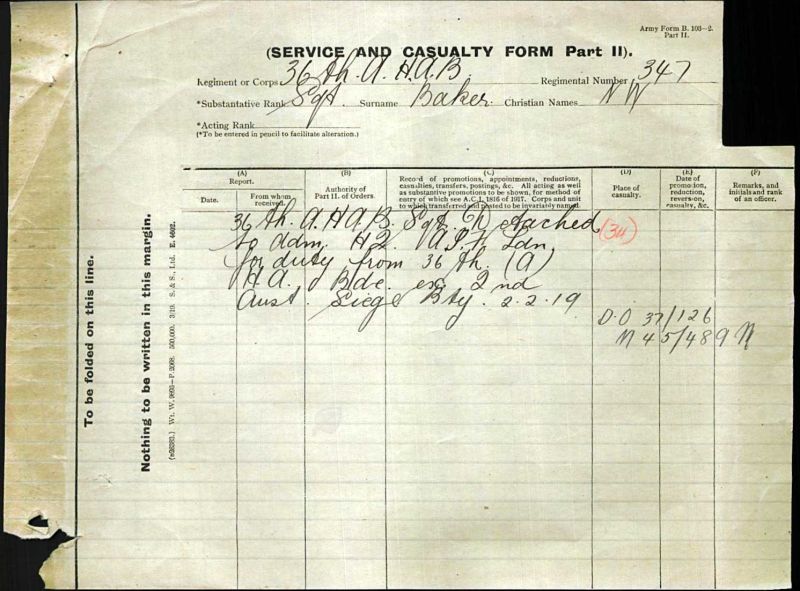 Army Form B. 103—2.
Part II.
(SERVICE AND CASUALTY FORM Part II).
Regiment or Corps 36 th. A. H. A. B. Regimental Number 347
*Substantative Rank Sgt. Surname Baker. Christian Names N W
*Acting Rank
(*To be entered in pencil to facilitate alteration.)
(A) (B) (C) (D) (E) (F)
Report. Date. From whom received.
Authority of Part II. of Orders.
Record of promotions, appointments, reductions,
casualties, transfers, postings, &c. All acting as well
as substantive promotions to be shown, for method of
entry of which see A.C.I. 1816 of 1917. Corps and unit
to which transferred and posted to be invariably named.
Place of casualty.
Date of promotion, reduction, reversion, casualty, &c.
Remarks, and initials and rank of an officer.
36 th. A. H. A. B. Sgt. attached (34)
to adm. H.Q. A.I.F. Ldn.
for duty from 36 th. (A)
H.A. Bde. ex 2nd
Aust. Siege Bty. 2.2.19
D.O 37/126
N 45/489
To be folded on this line.
Nothing to be written in this margin.
Wt. W. 9893—P.2068. 500,000. 3/19. S. & S., Ltd. E. 4602.